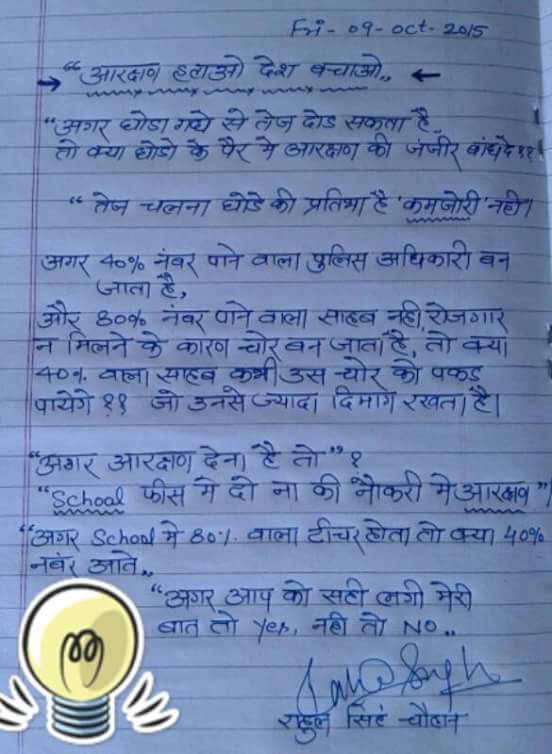 Fri - 09 - oct - 2015
→ “आरक्षण हटाओ देश बचाओ,, ←
“अगर घोडा गधे से तेज दोड सकता है,
तो क्या घोडो के पैर मे आरक्षण की जंजीर बांधदे??
“ तेज चलना घोडे की प्रतिभा है 'कमजोरी' नही।
अगर 40% नंबर पाने वाला पुलिस अधिकारी बन
जाता है,
और 80% नंबर पाने वाला साहब नही, रोजगार
न मिलने के कारण चोर बन जाता है, तो क्या
40% वाला साहब कभी उस चोर को पकड
पायेगे ?? जो उनसे ज्यादा दिमाग रखता है।
“अगर आरक्षण देना है तो” ?
“School फीस मे दो ना की नौकरी मे आरक्षण”
“अगर School मे 80% वाला टीचर होता तो क्या 40%
नबंर आते,,
“अगर आप को सही लगी मेरी
बात तो Yes, नही तो NO,,
राहुल सिंह चौहान